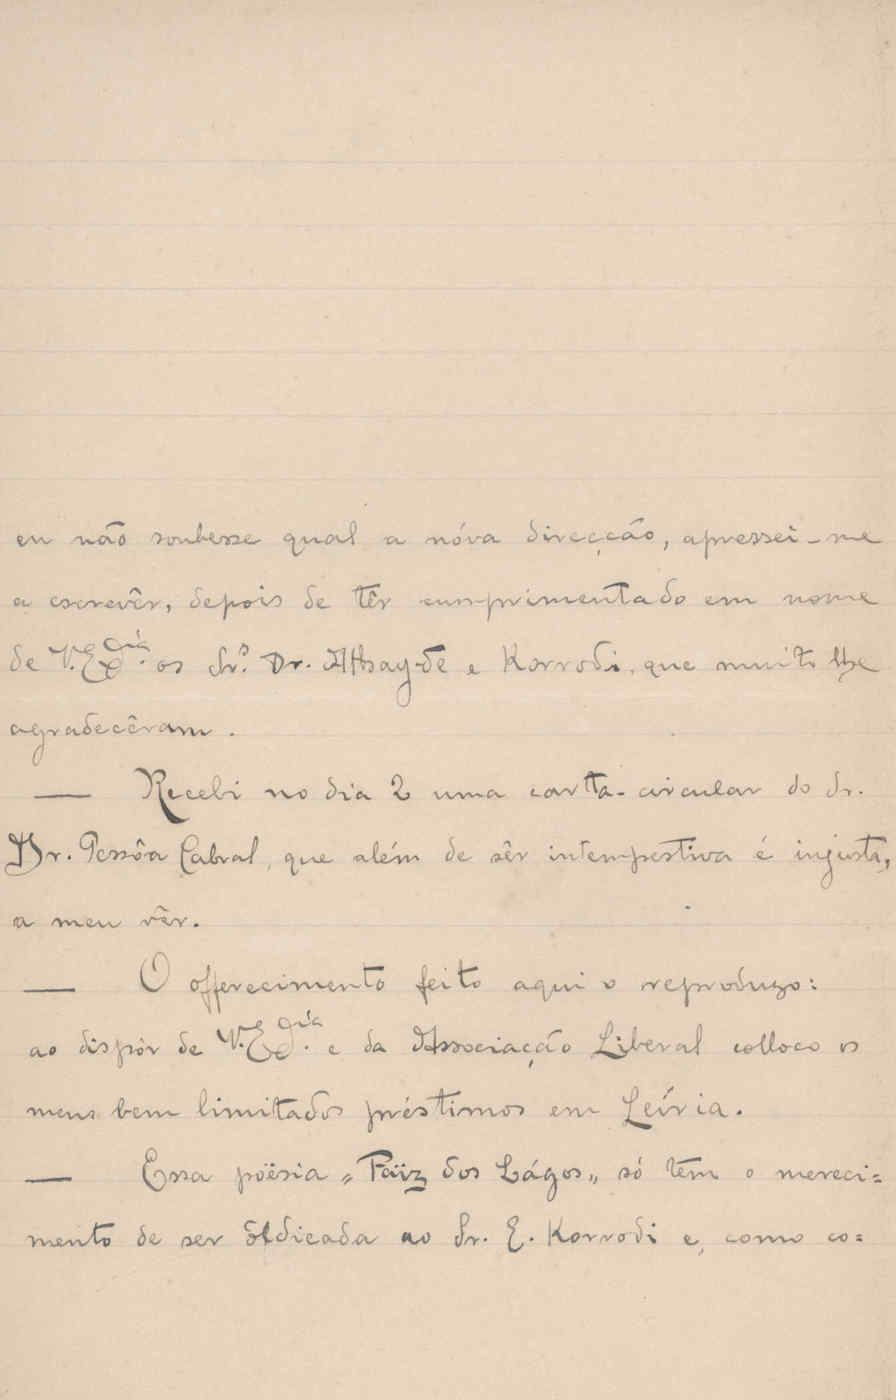 eu não soubesse qual a nóva direcção, apressei-me
a escrevêr, depois de têr cumprimentado em nome
de V. Exª. os Srs. Dr. Athayde e Korrodi, que muito lhe
agradecêram.
— Recebi no dia 2 uma carta-circular do Sr.
Dr. Pessôa Cabral, que além de sêr intempestiva é injusta,
a meu vêr.
— O offerecimento feito aqui o reproduzo:
ao dispôr de V. Exª. e da Associação Liberal colloco os
meus bem limitados préstimos em Leíria.
— Essa poësia "Païz dos Lágos" só têm o mereci=
mento de ser dedicada ao Sr. E. Korrodi e, como co=